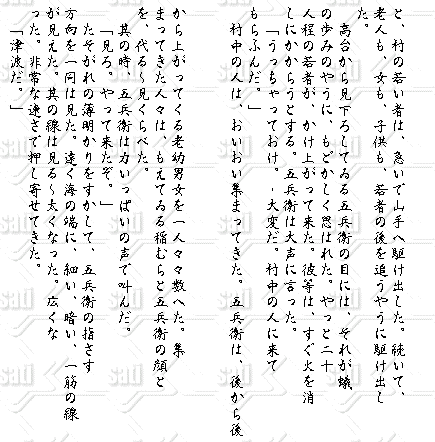 と、村の若い者は、急いで山手へ駆け出した。続いて、
老人も、女も、子供も、若者の後を追うやうに駆け出し
た。
高台から見下ろしてゐる五兵衛の目には、それが蟻
の歩みのやうに、もどかしく思はれた。やっと二十
人程の若者が、かけ上がって来た。彼等は、すぐ火を消
しにかからうとする。五兵衛は大声に言った。
「うっちゃっておけ。-大変だ。村中の人に来て
もらふんだ。」
村中の人は、おいおい集まってきた。五兵衛は、後から後
から上がってくる老幼男女を一人々々数へた。集
まってきた人々は、もえてゐる稲むらと五兵衛の顔と
を、代る〜見くらべた。
其の時、五兵衛は力いっぱいの声で叫んだ。
「見ろ。やって来たぞ。」
たそがれの薄明かりをすかして、五兵衛の指さす
方向を一同は見た。遠く海の端に、細い、暗い、一筋の線
が見えた。其の線は見る〜太くなった。広くな
った。非常な速さで押し寄せてきた。
「津波だ。」